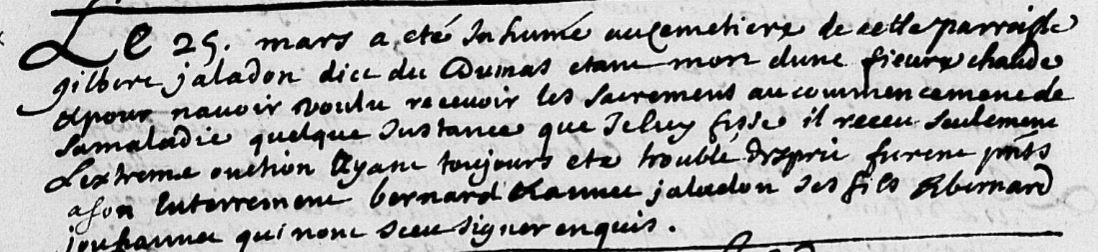 Le 25. mars a eté Inhumé au cemetiere de cette parroisse
gilbert jaladon dict du Dumas etant mort dune fieure chaude
& pour nauoir voulu receuoir les sacremens au commencement de
sa maladie quelque Instance que Je luy fisse il receu seulement
Lextreme onction Ayant toujours eté troublé d'esprit furent pnts
a son Enterrement bernard & annet jaladon ses fils & bernard
qui nont sceu signer enquis.